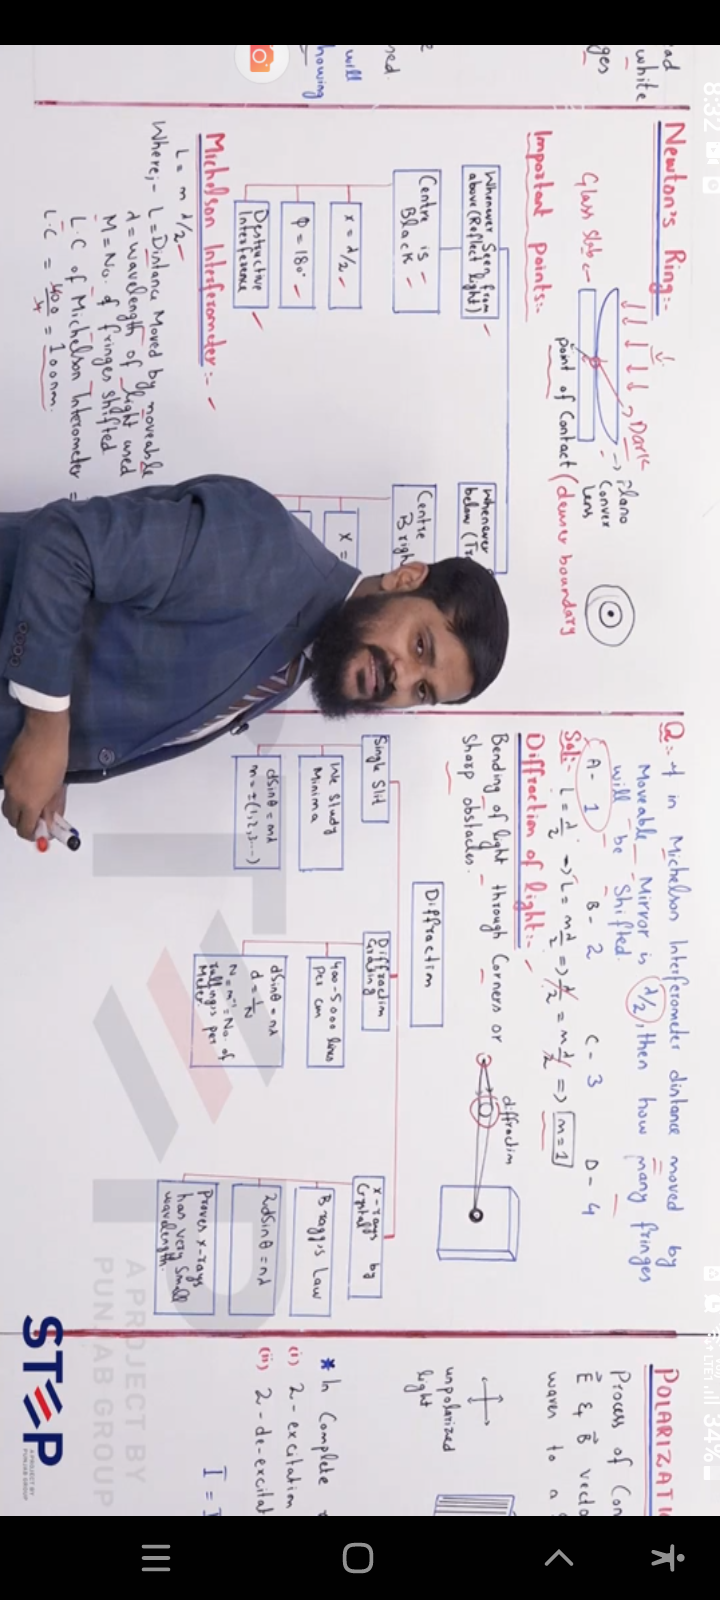 8:32
34%
ad
white
ges
ned
will
howing
Newton's Ring:-
Dark
Plano
Convex
Lens
Glass Slab
point of Contact (denser boundary
Important points:-
Whenever Seen from
above (Reflect light)
Centre is
Black
x = λ/2
Φ = 180°
Destructive
Interference
Whenever
below (Tr
Centre
Brigh
x =
Michelson Interferometer:-
L = m λ/2
Where;- L = Distance Moved by moveable
λ = wavelength of light used
M = No. of fringes shifted
L.C of Michelson Interometer =
L.C = 400/4 = 100nm.
Q:- If in Michelson Interferometer distance moved by
Moveable Mirror is λ/2, then how many fringes
will be Shifted.
A- 1 B- 2 C- 3 D- 4
Sol:- L = λ/2 => L = mλ/2 => λ/2 = mλ/2 => m = 1
Diffraction of light:-
Bending of light through Corners or
Sharp obstacles.
diffraction
Diffraction
Single Slit
We Study
Minima
dSinθ = mλ
m = ±(1,2,3...)
Diffraction
Grating
400-5000 lines
per cm
dSinθ = nλ
d = 1/N
N = m⁻¹ = No. of
rulings per
Meter.
X-rays by
Crystal
Bragg's Law
2dSinθ = nλ
Proves X-rays
has very Small
wavelength.
POLARIZATI
Process of Con
E & B vecto
waves to a
unpolarized
light
* In Complete
(i) 2-excitation
(ii) 2-de-excitat
I = I
A PROJECT BY
PUNJAB GROUP
STEP
A PROJECT BY
PUNJAB GROUP